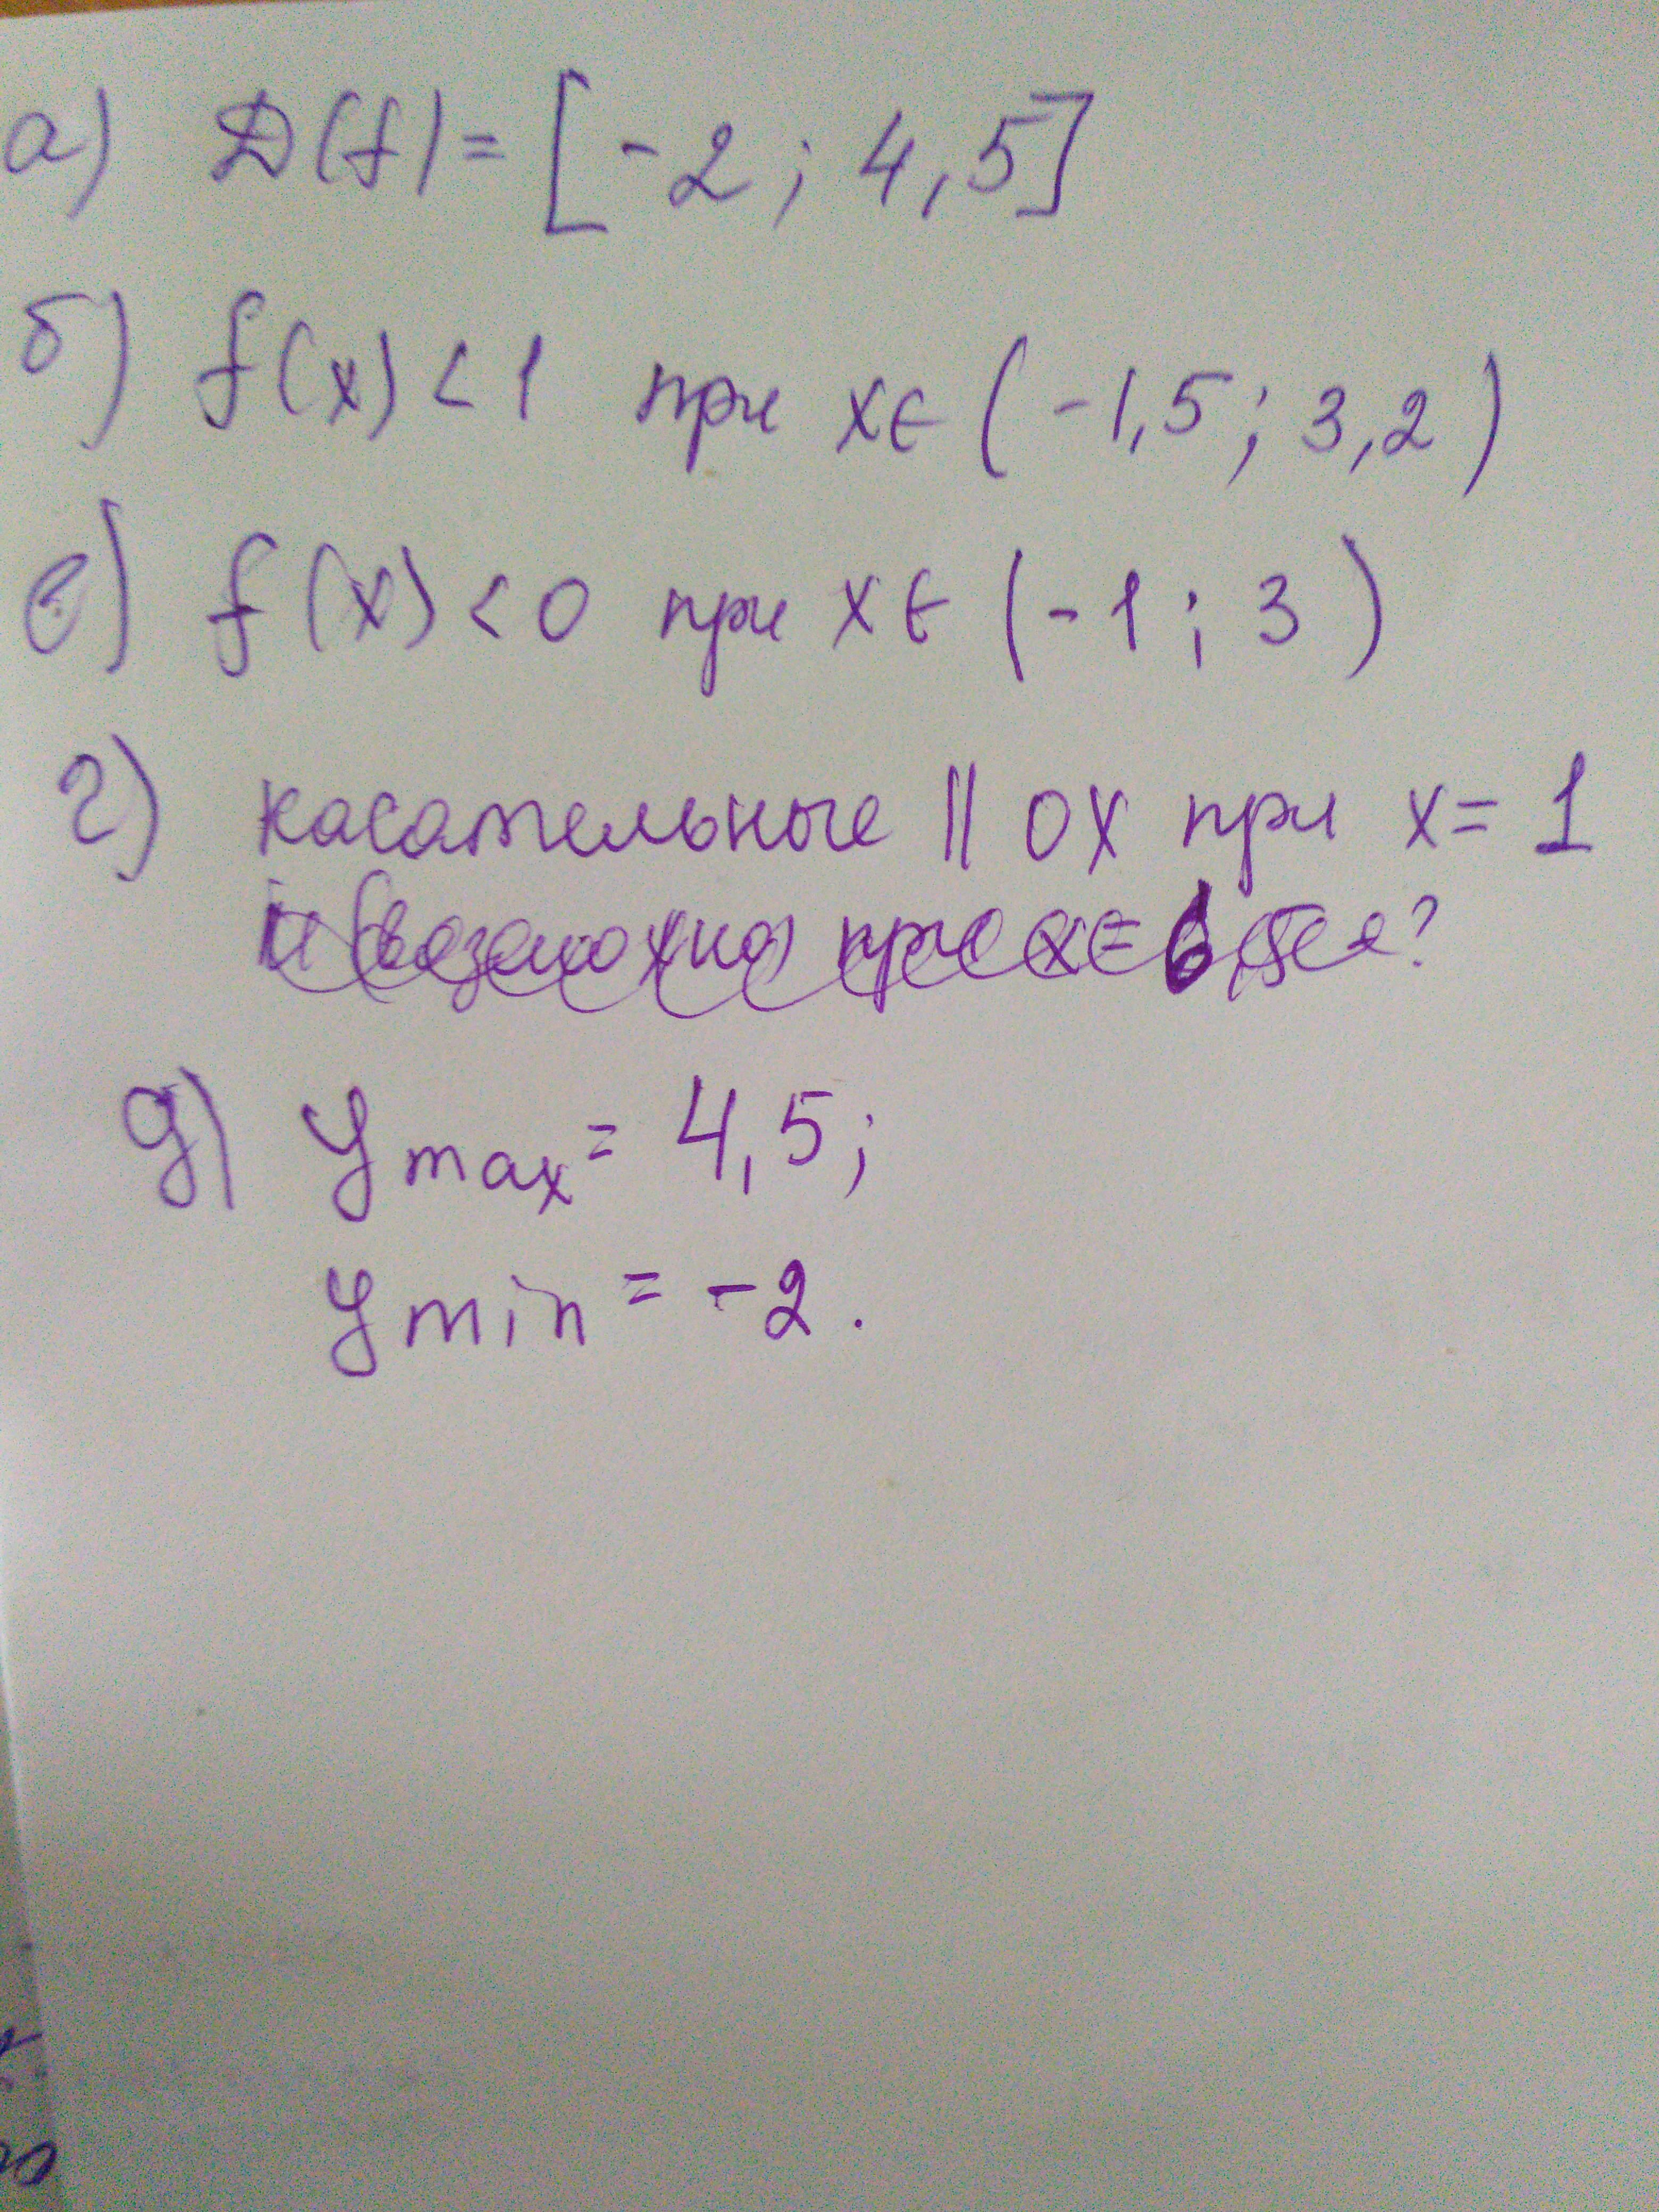 а) D(f) = [-2; 4,5]
б) f(x) < 1 при x∈(-1,5; 3,2)
в) f(x) < 0 при x∈(-1; 3)
г) касательные || OX при x = 1
и (возможно) при x =
д) y max = 4,5;
y min = -2.